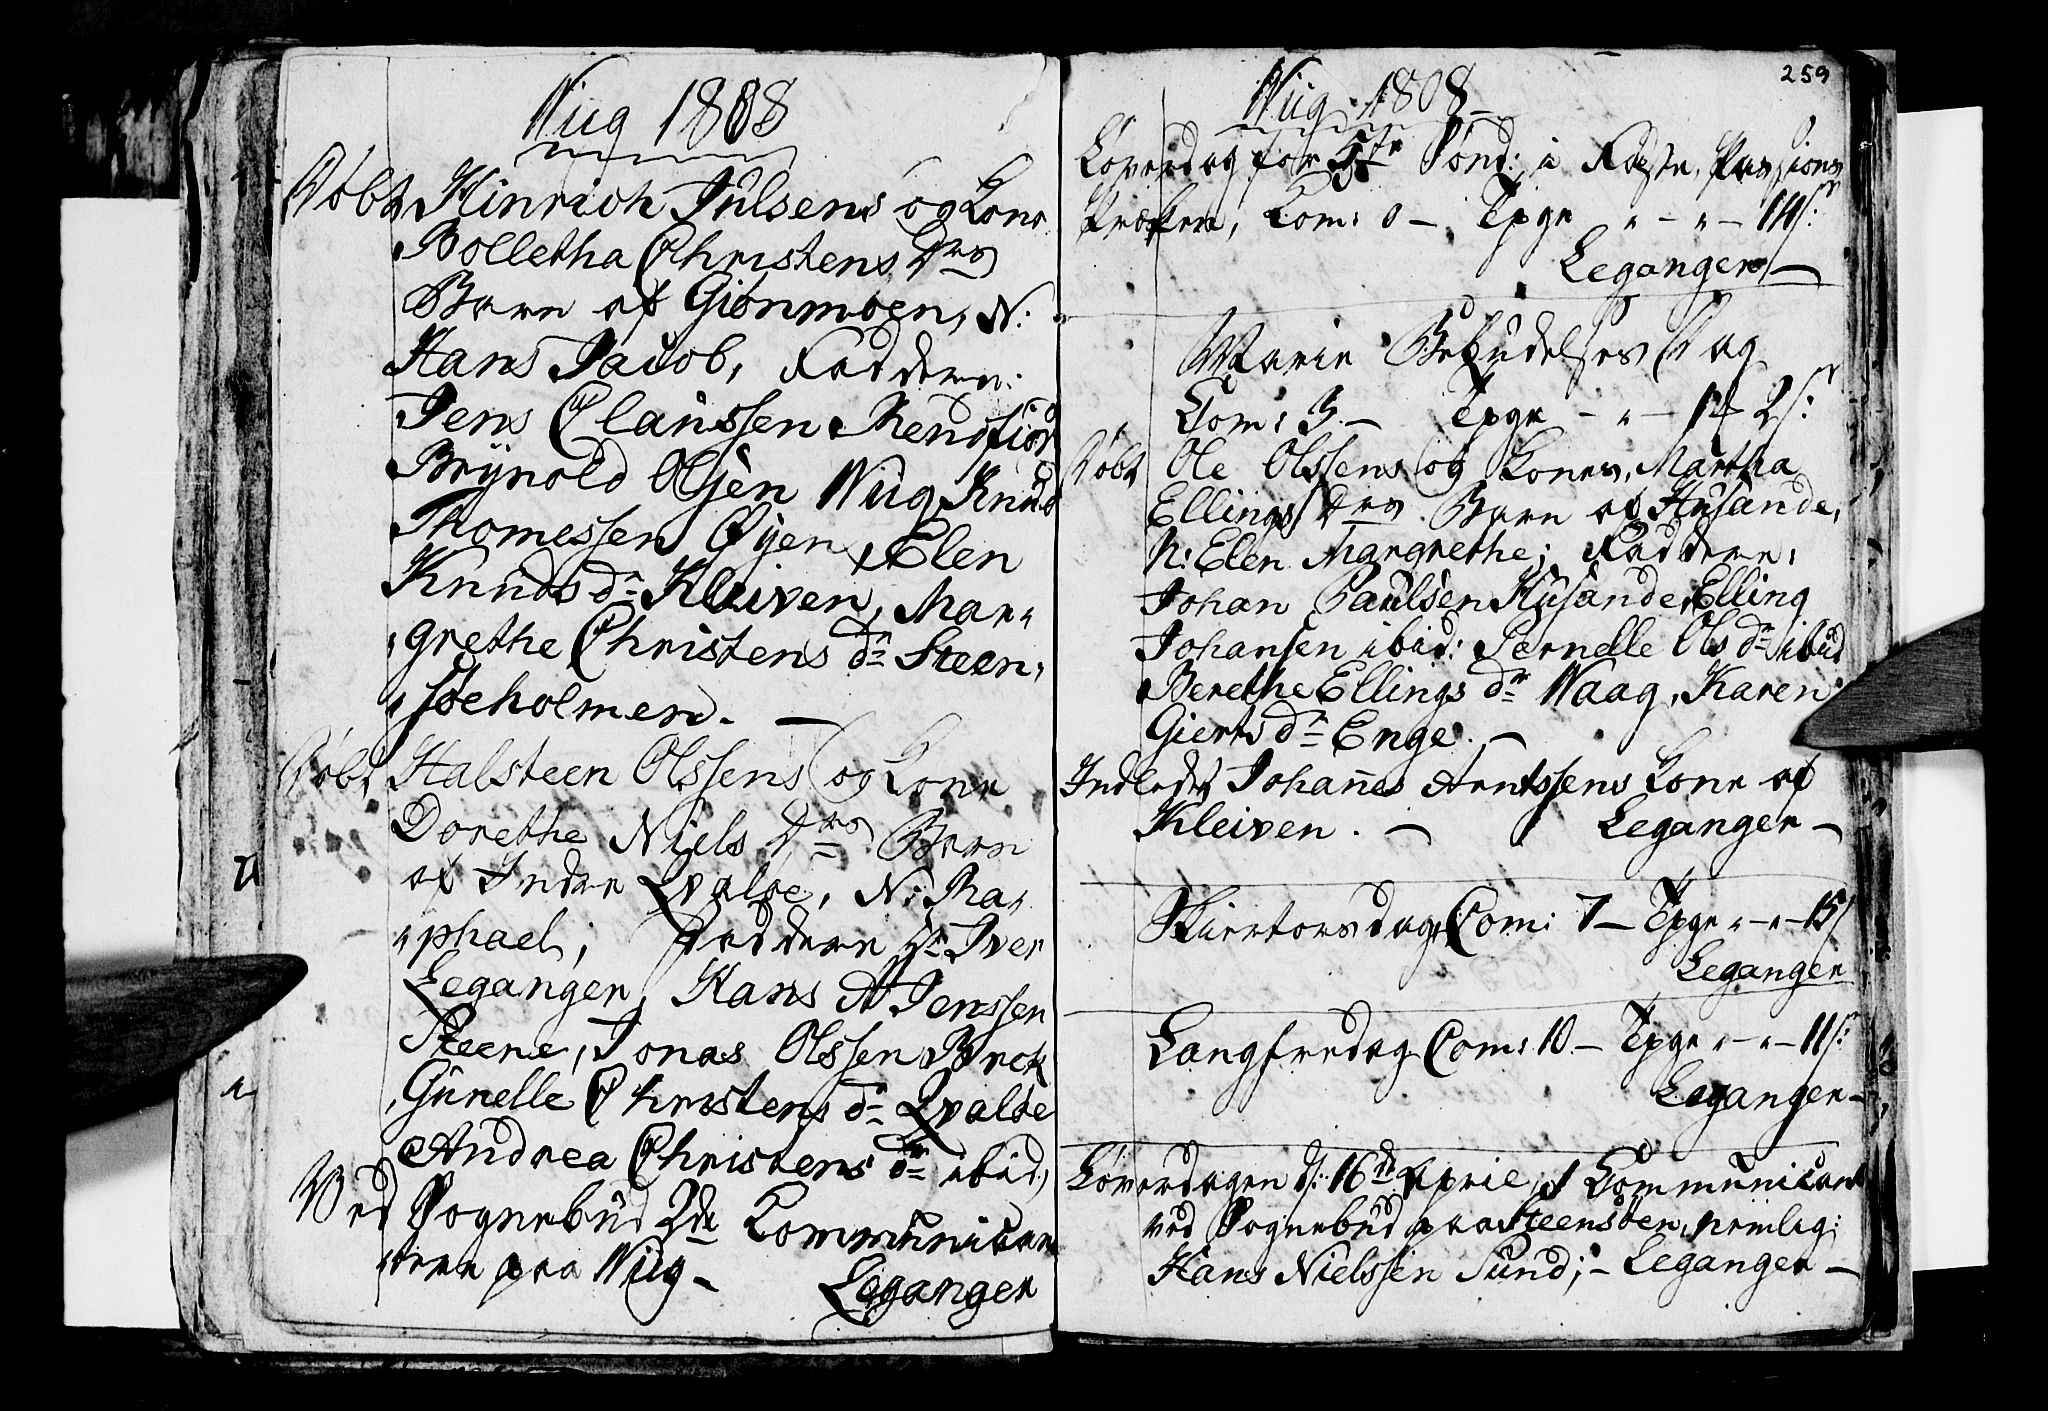 Wiig 1808
Døbt Hinrich Julsens og Kone
Bolletha Christens Drs
Barn af Giönmoen, N:
Hans Jacob, Faddere:
Jens Clausssen Rendfiord
Brÿnold Olsen Wiig, Knud
Thomessen Øyen, Elen
Knuds dr Kleiven, Mar-
grethe Christens dr Steen-
søeholmen. —
Døbt Halsteen Olssens og Kone
Dorethe Niels Drs Barn
af Indre Qvaløe, N: Ra-
phael; Faddere Hr Iver
Leganger, Hans A Jenssen
Steene, Jonas Olssen Breck
Gunelle Christens dr Qvaløe
Andrea Christens dr ibid;
Ved Sognebud 2de Communican-
tere paa Wiig —
Leganger
259
Wiig 1808 —
Løverdag for 3die Sönd: i Faste, Passions
Præken, Com: 0 — Tpge " — " — 14 s:
Leganger —
Marie Bebudelses Dag
Com: 3. — Tpge — " — 1 # 2 s:
Døbt Ole Olssens og Kones, Martha
Ellings Drs Barn af Husande,
N: Elen Margrethe; Faddere:
Johan Paulsen Husande, Elling
Johansen ibid: Pernelle Ols dr ibid
Berethe Ellings dr Waag, Karen
Gierts dr Enge. —
Indledet Johannes Arntssens Kone af
Kleiven. — Leganger —
Skiertorsdag, Com: 7 — Tpge " — " — 15 s
Leganger
Langfredag Com: 10. — Tpge " — " — 11 s:
Leganger —
Løverdagen d: 16de April, 1 Communicant
ved Sognebud paa Steensöen, nemlig:
Hans Nielssen Sund; — Leganger —